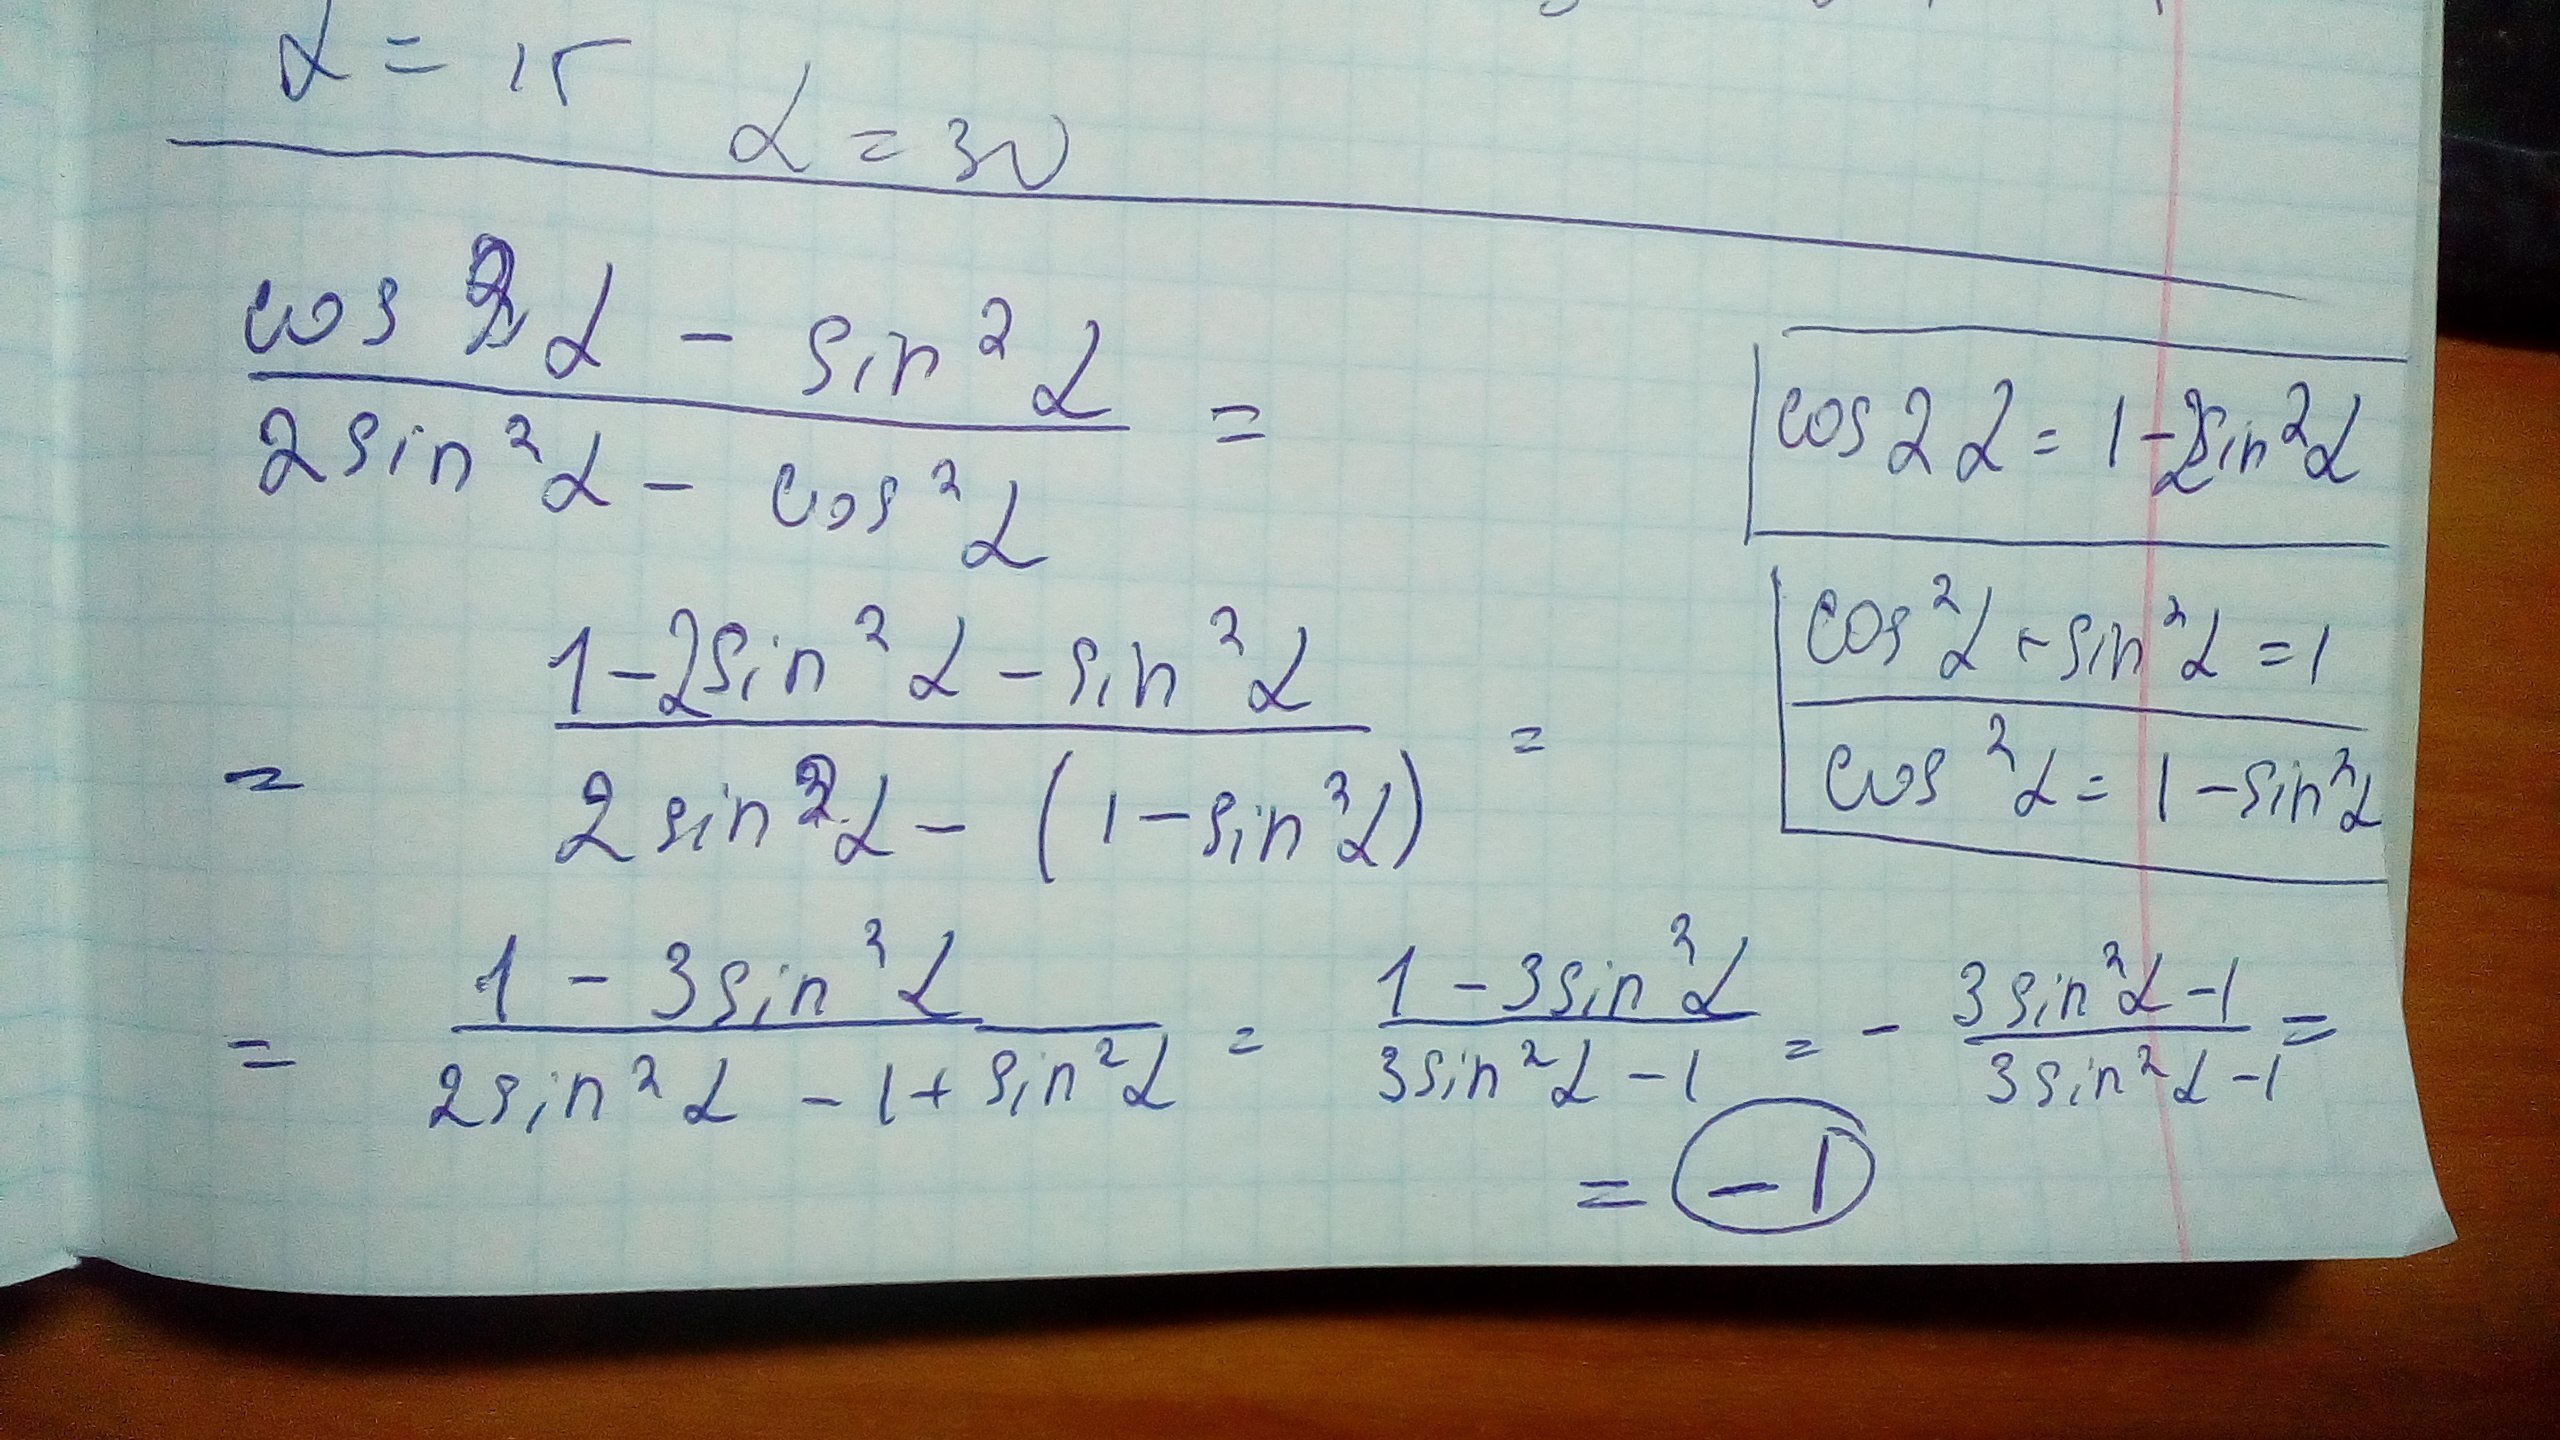 α = 15 α = 30
cos 2α - sin²α
2sin²α - cos²α =
cos 2α = 1 - 2sin²α
= 1-2sin²α - sin²α
2 sin²α - (1 - sin²α) =
cos²α + sin²α = 1
cos²α = 1 - sin²α
= 1 - 3sin²α / 2sin²α - 1 + sin²α = 1 - 3sin²α / 3sin²α - 1 = - 3sin²α - 1 / 3sin²α - 1 =
= -1